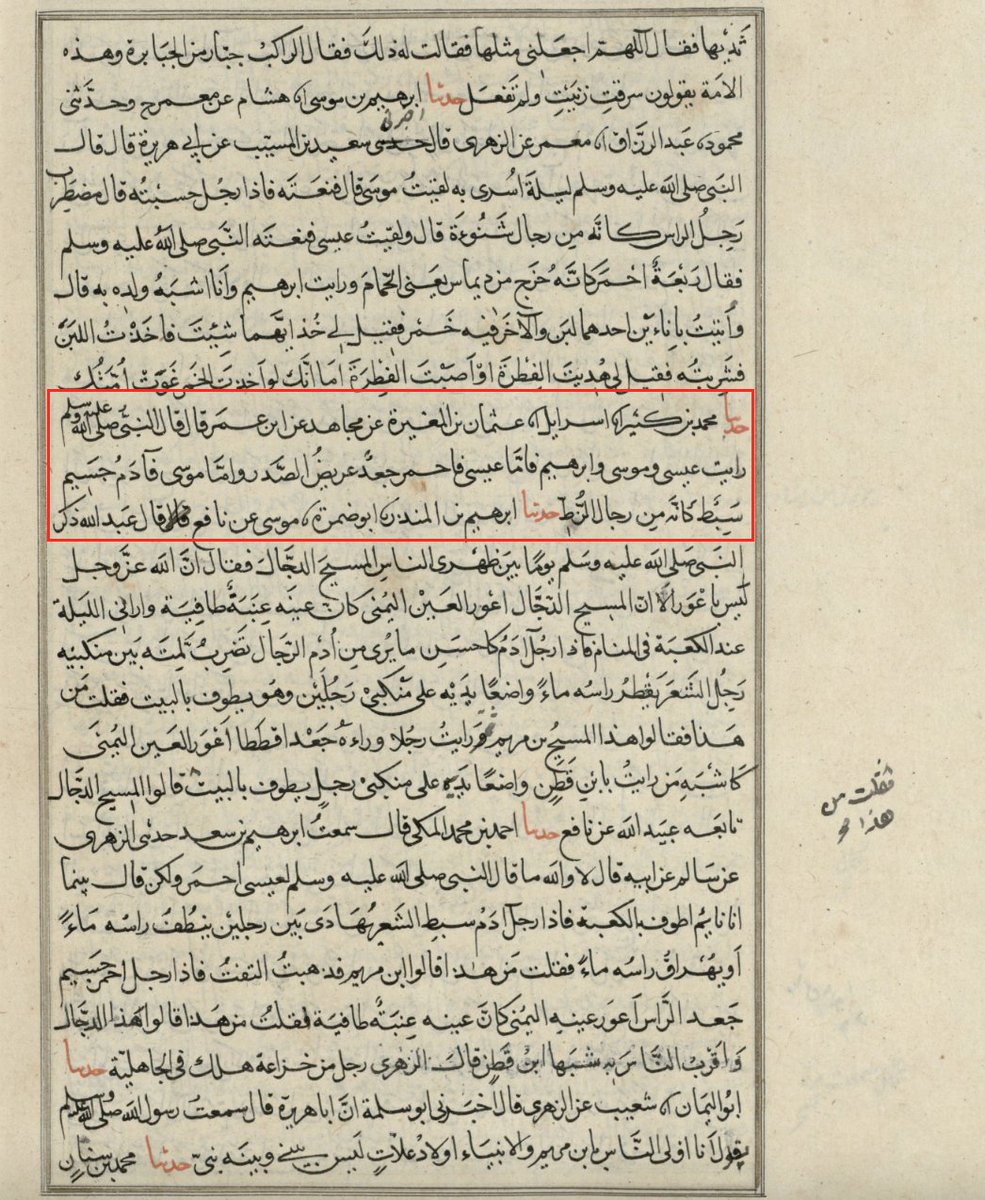 ثديها فقال اللهم اجعلني مثلها فقالت له ذلك فقال الراكب جبار من الجبابرة وهذه
الامة يقولون سرقتِ زنيتِ ولم تفعل حدثنا ابرهيم بن موسى انا هشام عن معمر ح وحدثنى
اخبرنى
محمود نا عبد الرزاق انا معمر عن الزهرى قال حدثنى سعيد بن المسيب عن ابى هريرة قال قال
النبى صلى الله عليه وسلم ليلة اسرى به لقيتُ موسى قال فنعته فاذا رجل حسبته قال مضطرب
رَجِلُ الراس كانّه من رجال شَنُوءَة قال ولقيتُ عيسى فنعته النّبى صلى الله عليه وسلم
فقال رَبْعَةٌ احمر كانّه خرج من ديماس يعنى الحمّام ورايت ابرهيم وانا اشبهُ ولده به قال
وأُتيتُ باناءين احدهما لبن والآخر فيه خمر فقيل لى خذ ايّهما شيت فاخذتُ اللبن
فشربته فقيل لى هُديتَ الفطرة او اصبت الفطرة اما انّك لو اخذت الخمر غوت امّتك
حدثنا محمد بن كثير انا اسرايل انا عثمان بن المغيرة عن مجاهد عن ابن عمر قال قال النبى صلى الله عليه وسلم
رايت عيسى وموسى وابرهيم فامّا عيسى فاحمر جعدٌ عريضُ الصَّدر وامّا موسى فآدمُ جسيم
سبط كانّه من رجال الزُّط حدثنا ابرهيم بن المنذر نا ابو ضمرة نا موسى عن نافع قال قال عبد الله ذكر
النبى صلى الله عليه وسلم يومًا بين ظهرى الناس المسيح الدجّال فقال انّ الله عزّ وجل
ليس باعور الا ان المسيح الدجّال اعور العين اليمنى كان عينه عنبةٌ طافية وارانى الليلة
عند الكعبة فى المنام فاذا رجلٌ آدمُ كاحسن ما يُرى من اُدْم الرجال تضرب لِمّته بين منكبيه
رَجِلُ الشعر يقطرُ راسه ماءً واضعًا يديه على منكبى رجلين وهو يطوف بالبيت فقلت من
هذا فقالوا هذا المسيح بن مريم ورايتُ رجلا وراءه جعدا قططا اعور العين اليمنى
كاشبه من رايتُ بابن قطن واضعًا يديه على منكبى رجل يطوف بالبيت قالوا المسيح الدجّال
فقلت من
هذا
تابعه عبيد الله عن نافع حدثنا احمد بن محمد المكى قال سمعتُ ابرهيم بن سعد حدثنى الزهرى
عن سالم عن ابيه قال لا والله ما قال النبى صلى الله عليه وسلم لعيسى احمر ولكن قال بينما
انا نايم اطوف بالكعبة فاذا رجل آدمُ سبط الشعر يُهادَى بين رجلين ينطُف راسُه ماءً
او يُهراق راسُه ماءً فقلت من هذا قالوا ابن مريم فذهبتُ التفتُ فاذا رجل احمر جسيم
جعد الرّاس اعور عينه اليمنى كانّ عينه عنبةٌ طافية فقلتُ من هذا قالوا هذا الدجّال
واقربُ النّاس به شبهًا ابن قَطَن قال الزهرى رجل من خزاعة هلك فى الجاهلية حدثنا
ابو اليمان انا شعيب عن الزهرى قال اخبرنى ابو سلمة انّ ابا هريرة قال سمعتُ رسول الله صلى الله عليه وسلم
يقول انا اولى النّاس بابن مريم والانبياء اولاد علّاتٍ ليس بينى وبينه نبىّ حدثنا محمد بن سنان